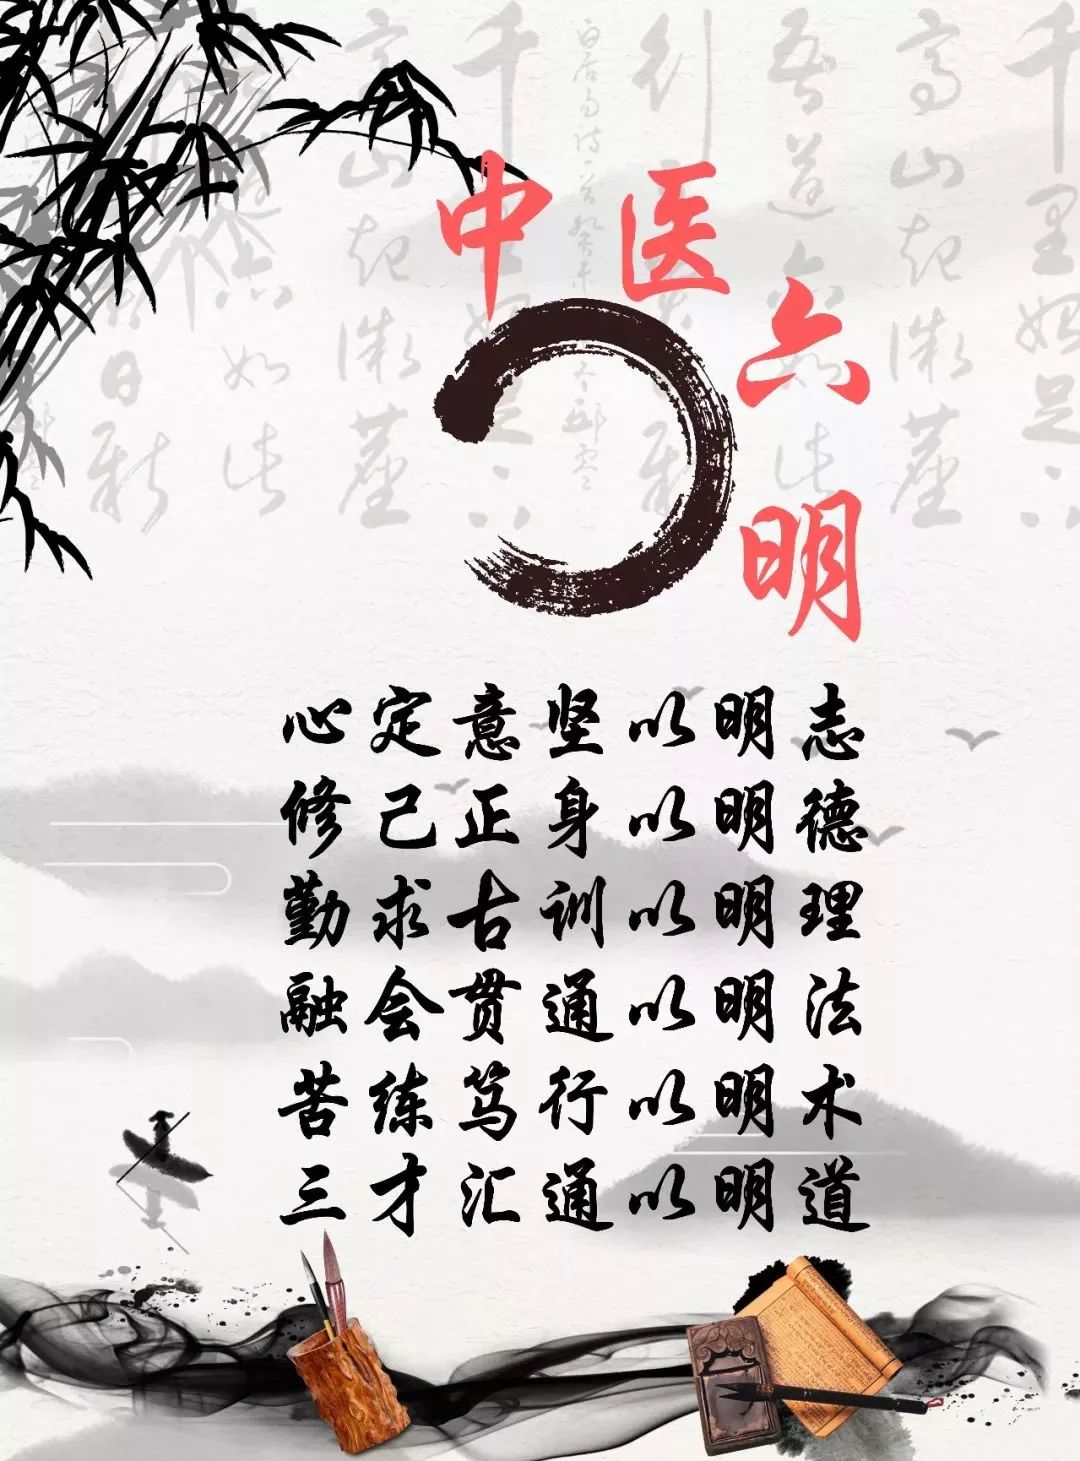 中医六明
心定意坚以明志
修己正身以明德
勤求古训以明理
融会贯通以明法
苦练笃行以明术
三才汇通以明道